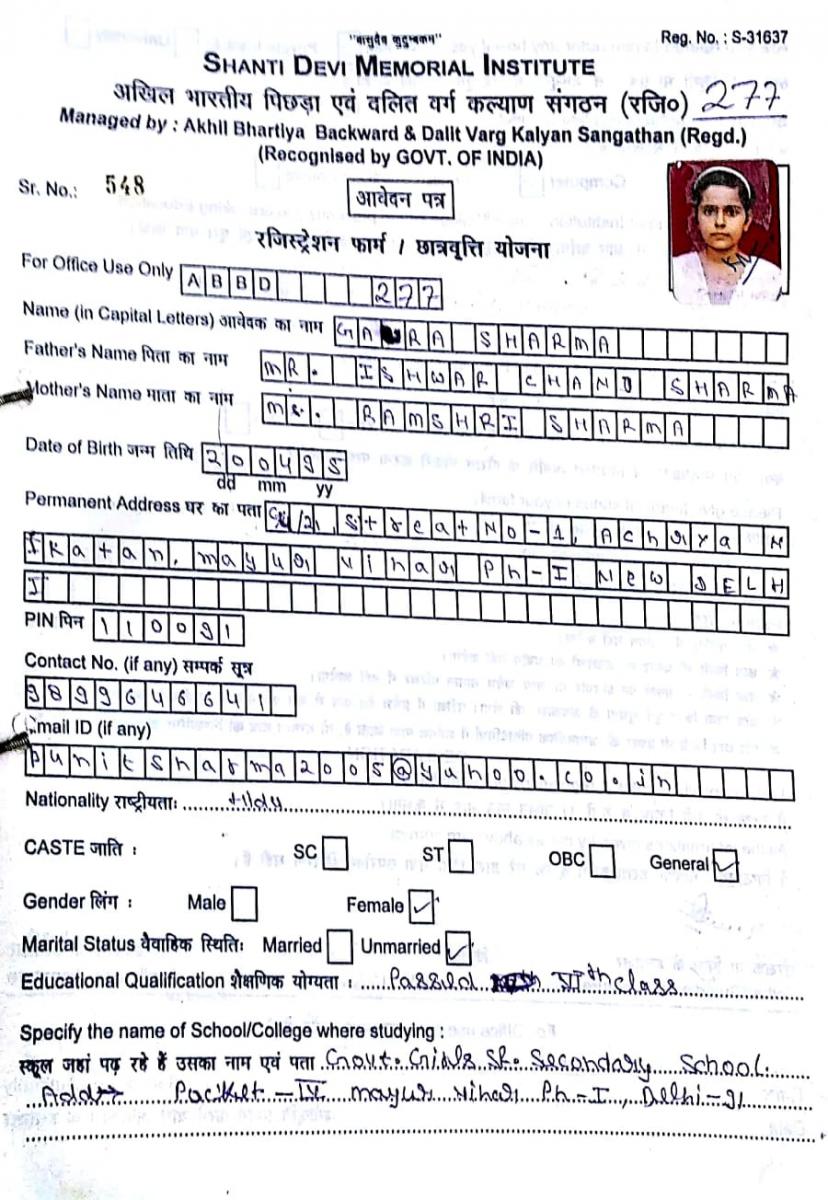 "वासुदैव कुटुम्बकम"
Reg. No. : S-31637
SHANTI DEVI MEMORIAL INSTITUTE
अखिल भारतीय पिछड़ा एवं दलित वर्ग कल्याण संगठन (रजि०) 277
Managed by : Akhil Bhartiya Backward & Dalit Varg Kalyan Sangathan (Regd.)
(Recognised by GOVT. OF INDIA)
Sr. No.: 548
आवेदन पत्र
रजिस्ट्रेशन फार्म / छात्रवृत्ति योजना
For Office Use Only ABBD 277
Name (in Capital Letters) आवेदक का नाम SHARMA
Father's Name पिता का नाम MR. ISHWAR CHAND SHARMA
Mother's Name माता का नाम Ms. RAMSHRI SHARMA
Date of Birth जन्म तिथि 200495
dd mm yy
Permanent Address घर का पता /21, Streat NO-1, Acharya N
Ikatan, mayur vihar Ph-I NEW DELH
I
PIN पिन 110091
Contact No. (if any) सम्पर्क सूत्र
9899646641
Email ID (if any)
punitsharma2005@yahoo.co.in
Nationality राष्ट्रीयताः
CASTE जाति : SC ST OBC General ✓
Gender लिंग : Male Female ✓
Marital Status वैवाहिक स्थितिः Married Unmarried ✓
Educational Qualification शैक्षणिक योग्यता class
Specify the name of School/College where studying :
स्कूल जहां पढ़ रहे हैं उसका नाम एवं पता Govt. Girls Sr. Secondary School.
Pocket-IV mayur vihar Ph-I, Delhi-91